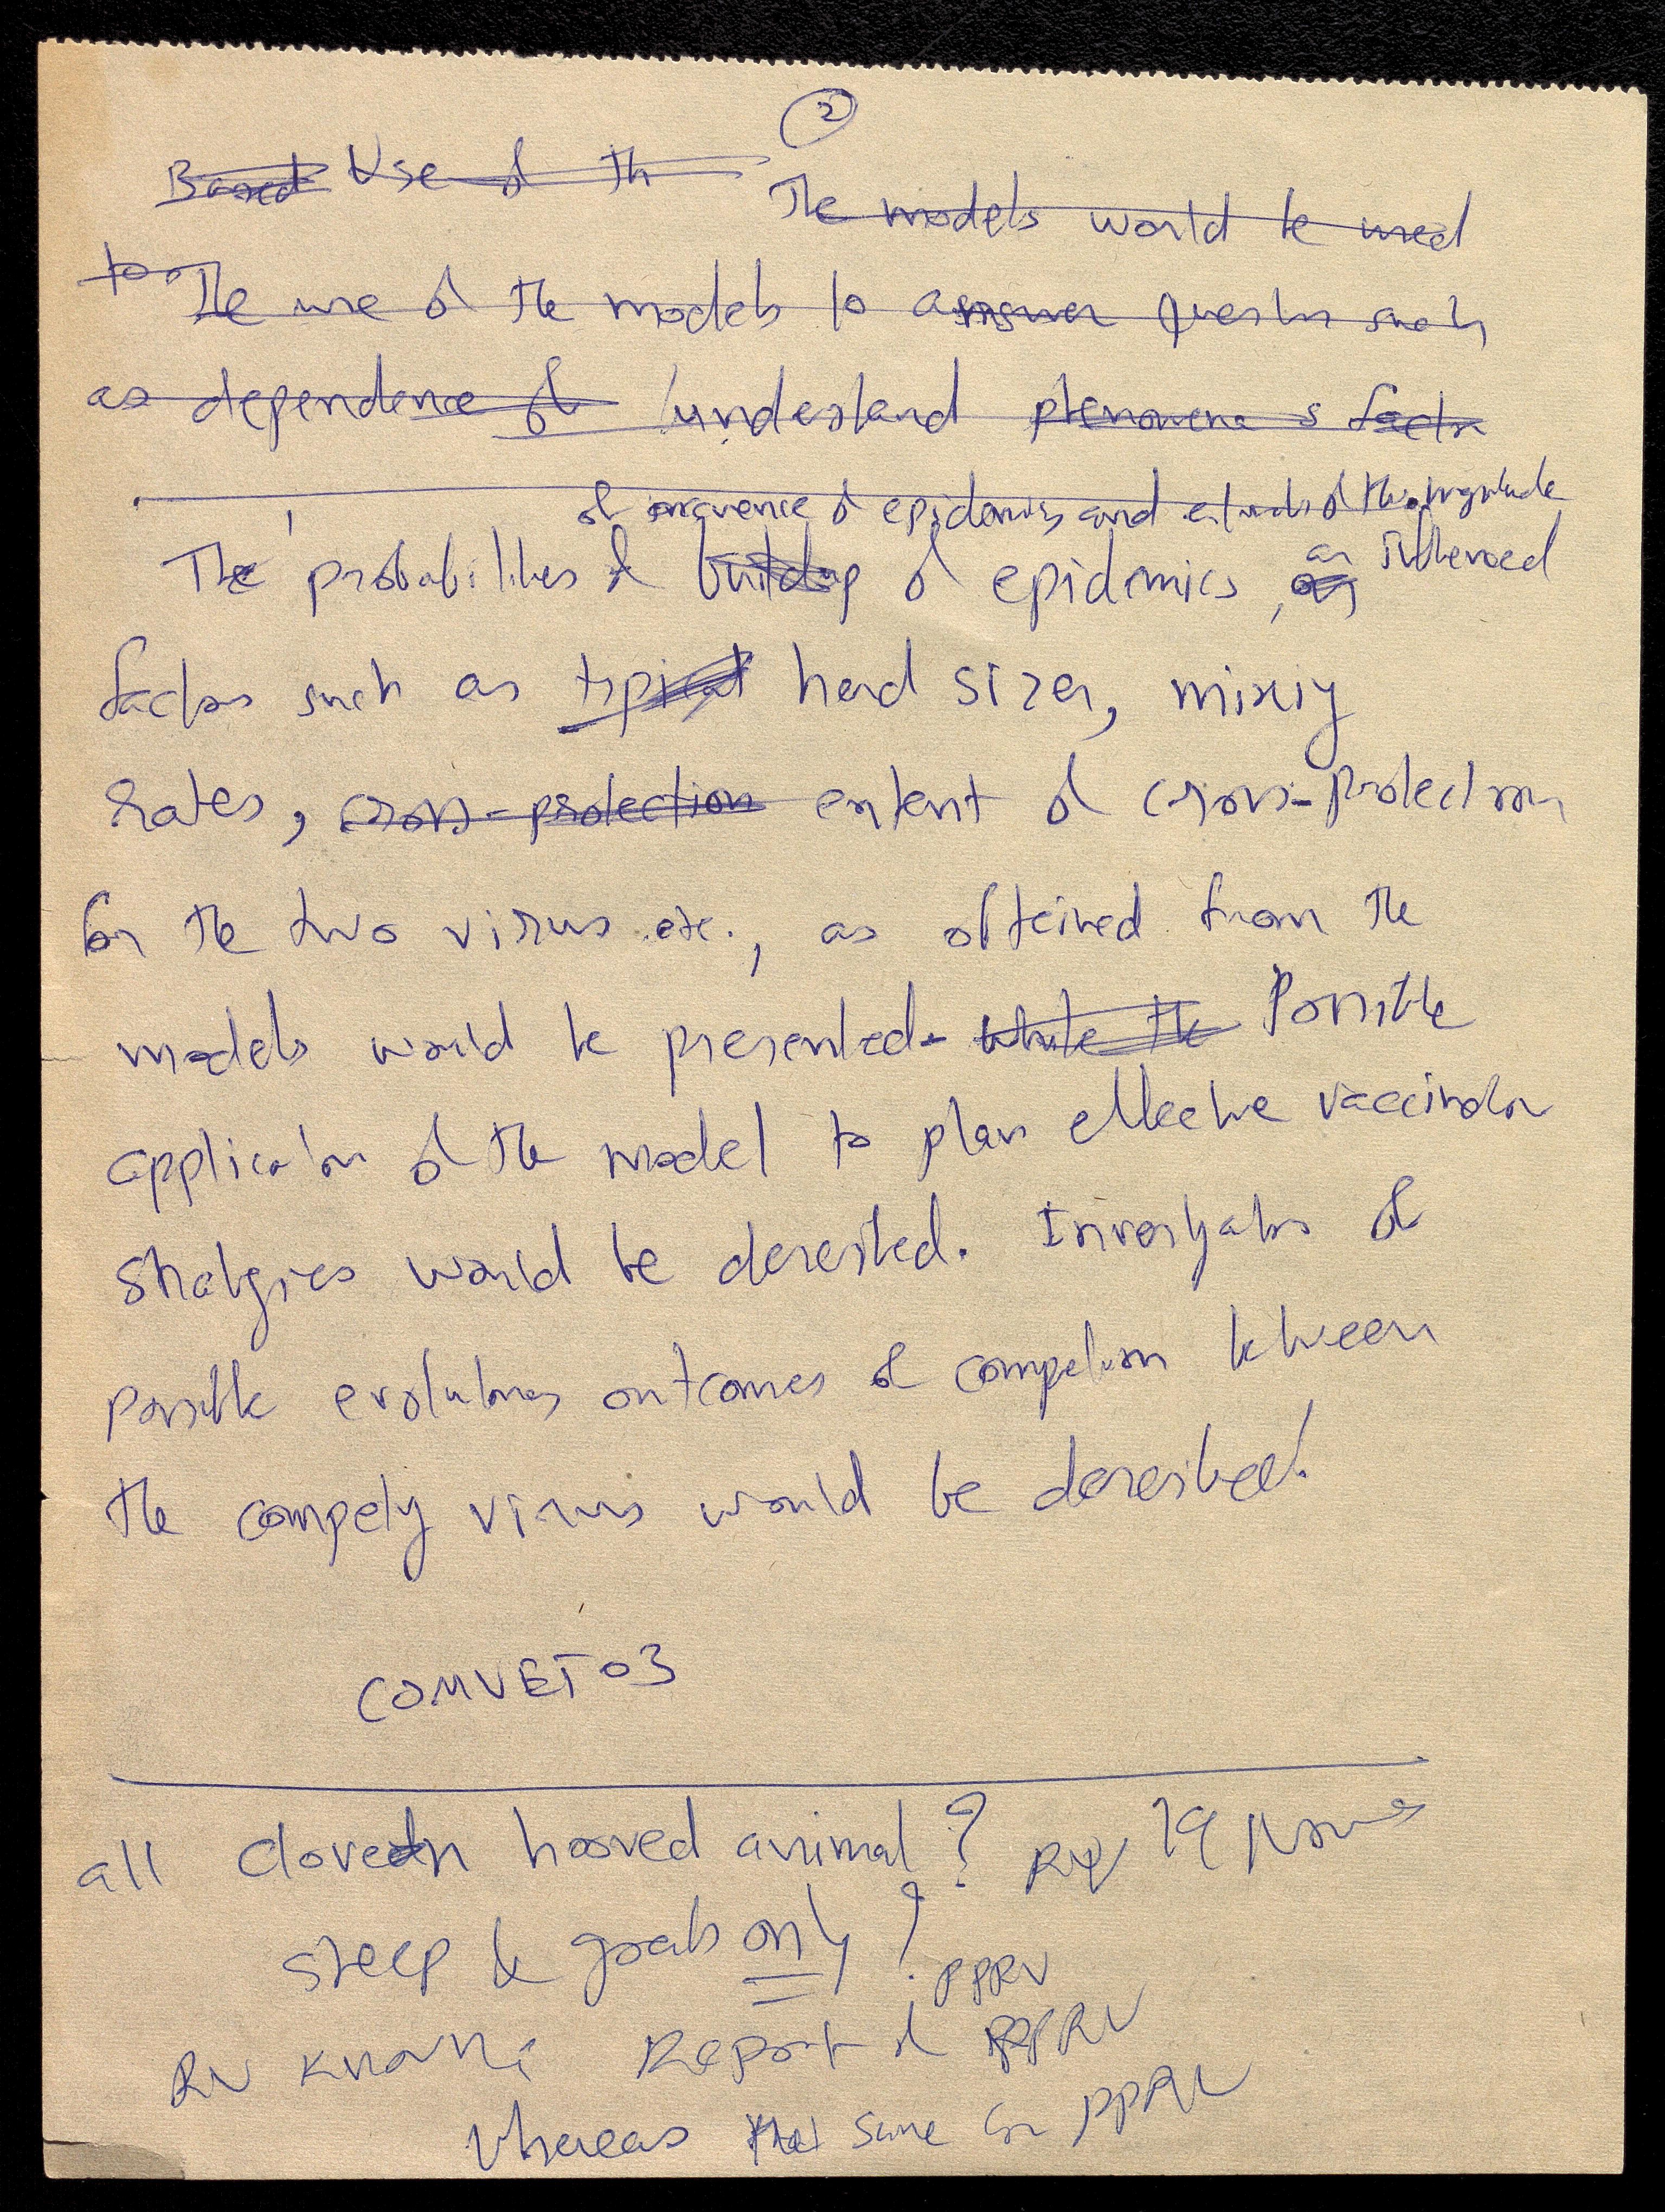 2
Based Use of th
The models would be used
to
The use of the models to answer question such
as dependence of understand phenomena s factr
of occurence of epidemics and of the magnitude
The probabilities of buildup of epidemics, as influenced
factors such as typical herd sizes, mixing
rates, cross-protection extent of cross-protection
for the two virus etc., as obtained from the
models would be presented. while the Possible
application of the model to plan effective vaccination
strategies would be described. Investigations of
possible evolutionary outcomes of competition between
the competing virus would be described.
COMVET03
all cloven hooved animal? RV 19
sheep & goats only? PPRV
RV known Report of PPRV
whereas that same for PPRV